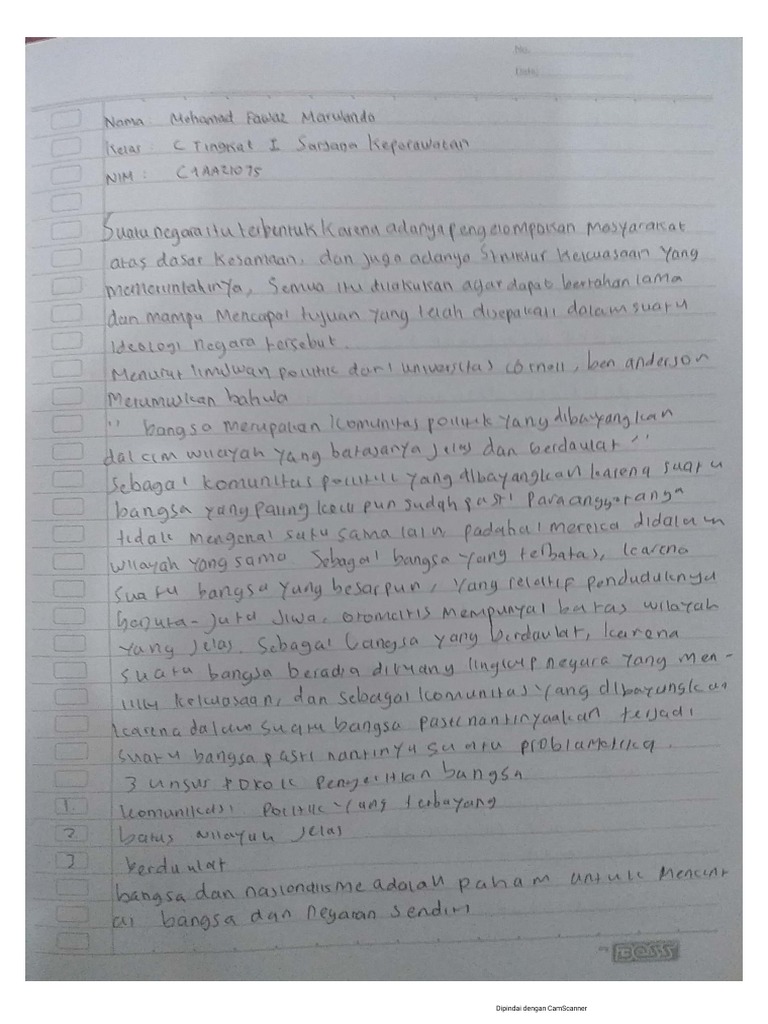 No.
Date:
Nama : Mohamad Fawaz Marwando
Kelas : C Tingkat I Sarjana Keperawatan
NIM : C1AA21075
Suatu negara itu terbentuk karena adanya pengelompokan masyarakat
atas dasar kesamaan, dan juga adanya struktur kekuasaan yang
memerintahinya, Semua itu dilakukan agar dapat bertahan lama
dan mampu mencapai tujuan yang telah disepakati dalam suatu
ideologi negara tersebut.
Menurut ilmuwan politik dari universitas cornell, ben anderson
Merumuskan bahwa
" bangsa merupakan komunitas politik yang dibayangkan
dalam wilayah yang batasanya jelas dan berdaulat "
sebagai komunitas politik yang dibayangkan karena suatu
bangsa yang paling kecil pun sudah pasti para anggotanya
tidak mengenal satu sama lain padahal mereka didalam
wilayah yang sama Sebagai bangsa yang terbatas, karena
suatu bangsa yang besarpun, yang relatif penduduknya
berjuta-juta jiwa, otomatis mempunyai batas wilayah
yang jelas. Sebagai bangsa yang berdaulat, karena
suatu bangsa berada diruang lingkup negara yang men-
iliki kekuasaan, dan sebagai komunitas yang dibayangkan
karena dalam suatu bangsa pasti nantinya akan terjadi
suatu bangsa pasti nantinya suatu problematika.
3 unsur pokok pengertian bangsa
1. komunikasi politik yang terbayang
2. batas wilayah jelas
3 berdaulat
bangsa dan nasionalisme adalah paham untuk mencint
ai bangsa dan negaran sendiri
BOSS
Dipindai dengan CamScanner